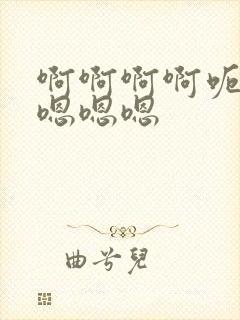 啊啊啊啊呃
嗯嗯嗯
曲兮兒